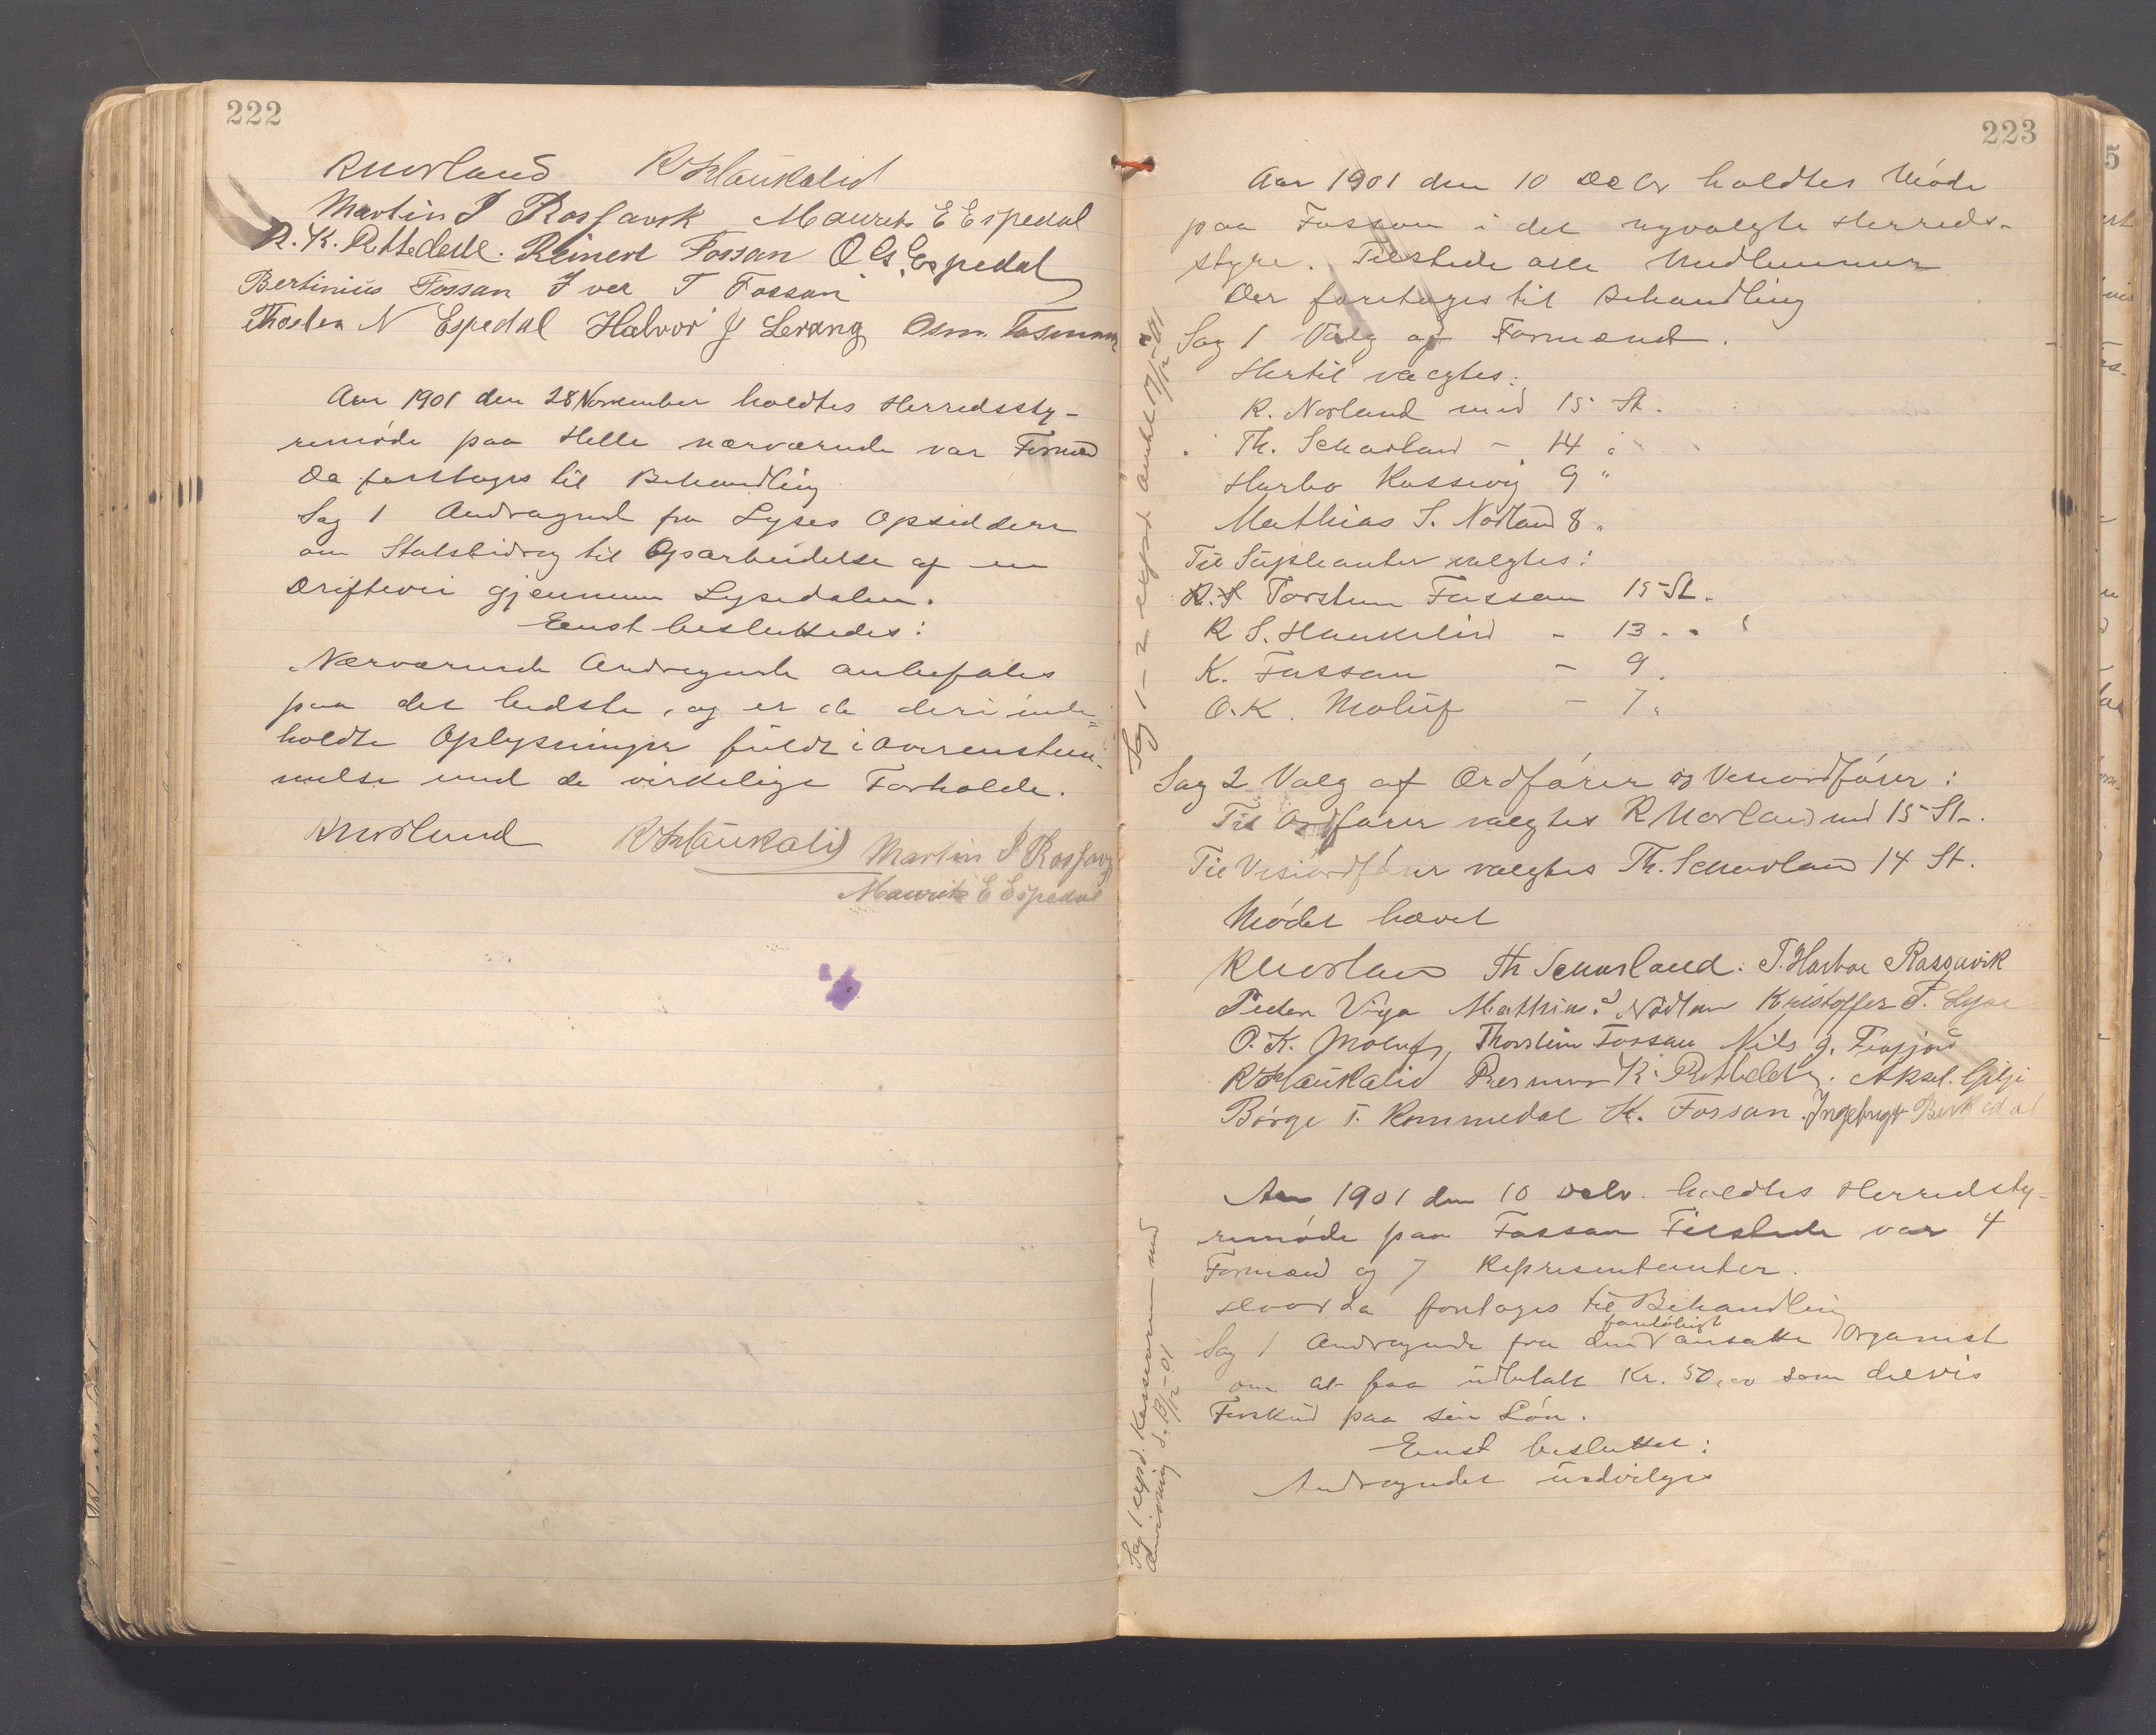 222
RNorland RSHaukalid
Martin J Rosfavik Maurits E Espedal
R. K. Rettedal. Reinert Fossan O Gs. Espedal
Bertinius Fossan Iver T Fossan
Thosten N Espedal Halvor J Lerang Osm.
Aar 1901 den 28 November holdtes Herredssty-
remøde paa Helle nærværende var Formæd
Da foretoges til Behandling
Sag 1 Andragend fra Lyses Opsiddere
om Statsbidrag til Oparbeidelse af en
Driftevei gjennem Lysedalen.
Eenst besluttedes:
Nærværende Andragende anbefales
paa det bedste, og er de deri inde=
holdte Oplysninger fuldt i Overenstem-
melse med de virkelige Forholde.
RNorland RSHaukalid Martin J Rosfavig
Maurits E Espedal
223
Aar 1901 den 10 Decbr holdtes Møde
paa Fossan i det nyvalgte Herreds-
styre. Tilstede alle Medlemmer
Der foretoges til Behandling
Sag 1 Valg af Formænd.
Hertil valgtes:
R. Norland med 15 St.
Th. Scharland - 14 "
Harbo Rassivig 9 "
Mathias S. Nødland 8 "
Til Supleanter valgtes:
R. S Torsten Fossan 15 St.
R S. Haukelid - 13 "
K. Fossan - 9 "
O. K. Moluf - 7 "
Sag 1 - 2 expd amtet 17/12-01
Sag 2 Valg af Ordfører og Viseordfører:
Til Ordfører valgtes R Norland med 15 St.
Til Viseordfører valgtes Th. Scharland 14 St.
Mødet hævet
RNorland Th Scharland. T. Harboe Rassavik
Peder Viga Mathias S Nødland Kristoffer P. Lyse
O. K. Moluf, Thorstein Fossan Nils G. Frafjord
RSHaukalid Rasmus K. Rettedal. Aksel. Gilje
Børge T. Rommedal K. Fossan. Ingebrigt Birkedal
Aar 1901 den 10 Decbr. holdtes Herredsty-
remøde paa Fossan Tilstede var 4
Formænd og 7 Representanter.
Hvor da foretoges til Behandling
Sag 1 Andragende fra den foreløbigt ansatte Organist
om at faa udbetalt Kr. 50,00 som delvis
Forskud paa sin Løn.
Eenst besluttet:
Andragendet indvilges
Sag 1 expd. Kasseren med
Anvisning d. 13/12-01